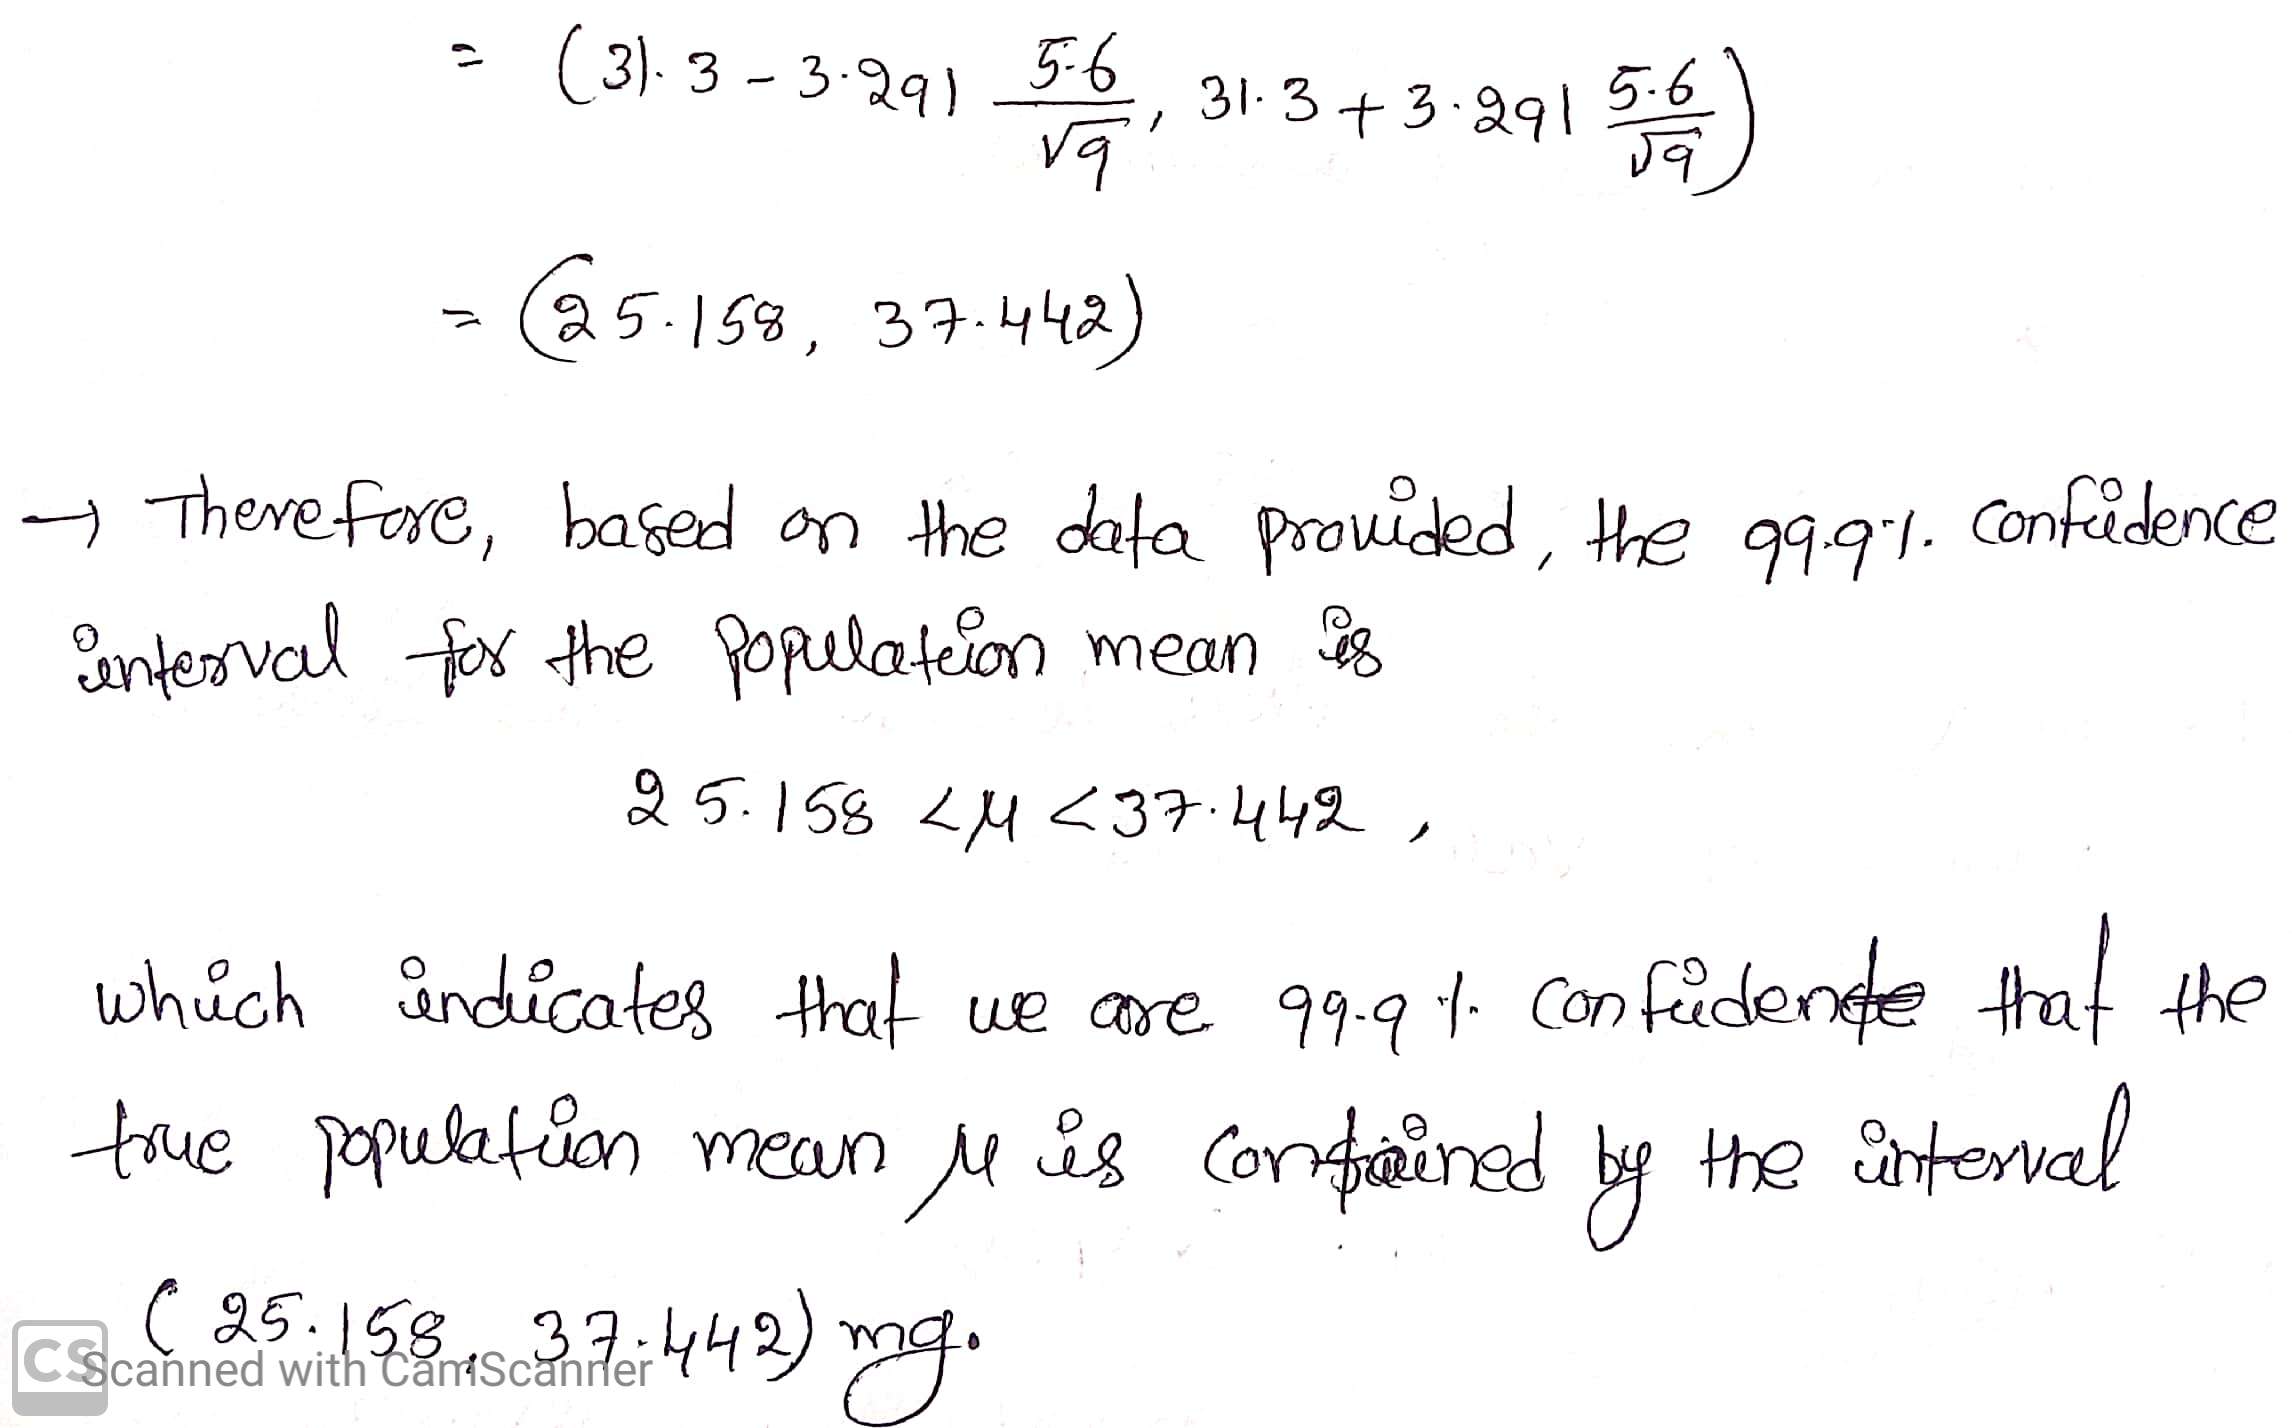 = (31.3 - 3.291 5.6/√9, 31.3 + 3.291 5.6/√9)
= (25.158, 37.442)
→ Therefore, based on the data provided, the 99.9%. confidence
interval for the population mean is
25.158 < μ < 37.442,
which indicates that we are 99.9%. confidente that the
true population mean μ is contained by the interval
(25.158, 37.442) mg.
CS Scanned with CamScanner